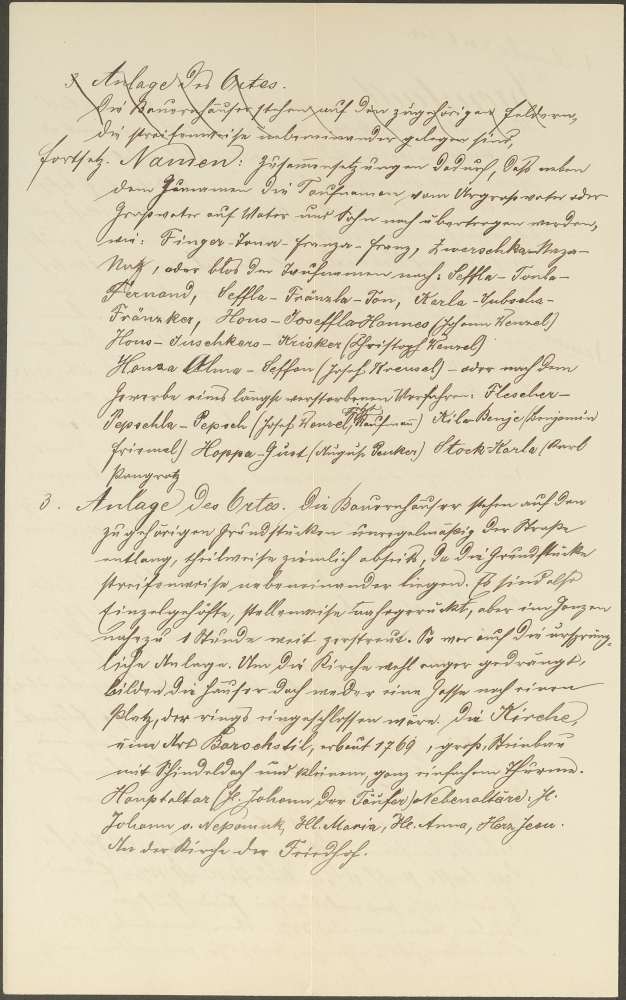 3. Anlage des Ortes.
Die Bauernhäuser stehen auf den zugehörigen Feldern,
die streifenweise nebeneinander gelegen sind,
Fortsetz. Namen: Zusammensetzungen dadurch, daß neben
dem Zunamen die Taufnamen vom Urgroßvater oder
Großvater auf Vater und Sohn noch übertragen werden,
wie: Finger-Tona-Franza-Franz, Zwerschka-Naza-
Natz, oder blos den Taufnamen nach: Seffla-Tonla-
Fernand, Seffla-Fränzla-Ton, Karla-
Fränzker, Hons-Joseffla Hannes (Johann Wenzel)
Hons-Juschkers-Krisker (Christoph Wenzel)
Honza Alma-Seffon (Josef Wenzel) - oder nach dem
Gewerbe eines längst verstorbenen Vorfahren: Flescher-
Pepschla-Pepsch (Josef Wenzel, jetzt Kaufmann) Kila-Benje (Benjamin
Friemel) Hoppa-Gust (August Penker) Stock-Karla (Karl
Pangratz
3. Anlage des Ortes. Die Bauernhäuser stehen auf den
zugehörigen Grundstücken unregelmäßig der Straße
entlang, theilweise ziemlich abseits, da die Grundstücke
streifenweise nebeneinander liegen. Es sind also
Einzelgehöfte, stellenweise nahegerückt, aber im Ganzen
nahezu 1 Stunde weit zerstreut. So war auch die ursprüng-
liche Anlage. Um die Kirche wohl enger gedrängt,
bilden die Häuser doch weder eine Gasse noch einen
Platz, der rings eingeschlossen wäre. Die Kirche,
eine Art Barockstil, erbaut 1769, groß, Steinbau
mit Schindeldach und kleinem, ganz einfachem Thurme.
Hauptaltar (hl. Johann der Täufer) Nebenaltäre: hl.
Johann v. Nepomuk, Hl. Maria, Hl. Anna, Herz Jesu.
An der Kirche der Friedhof.